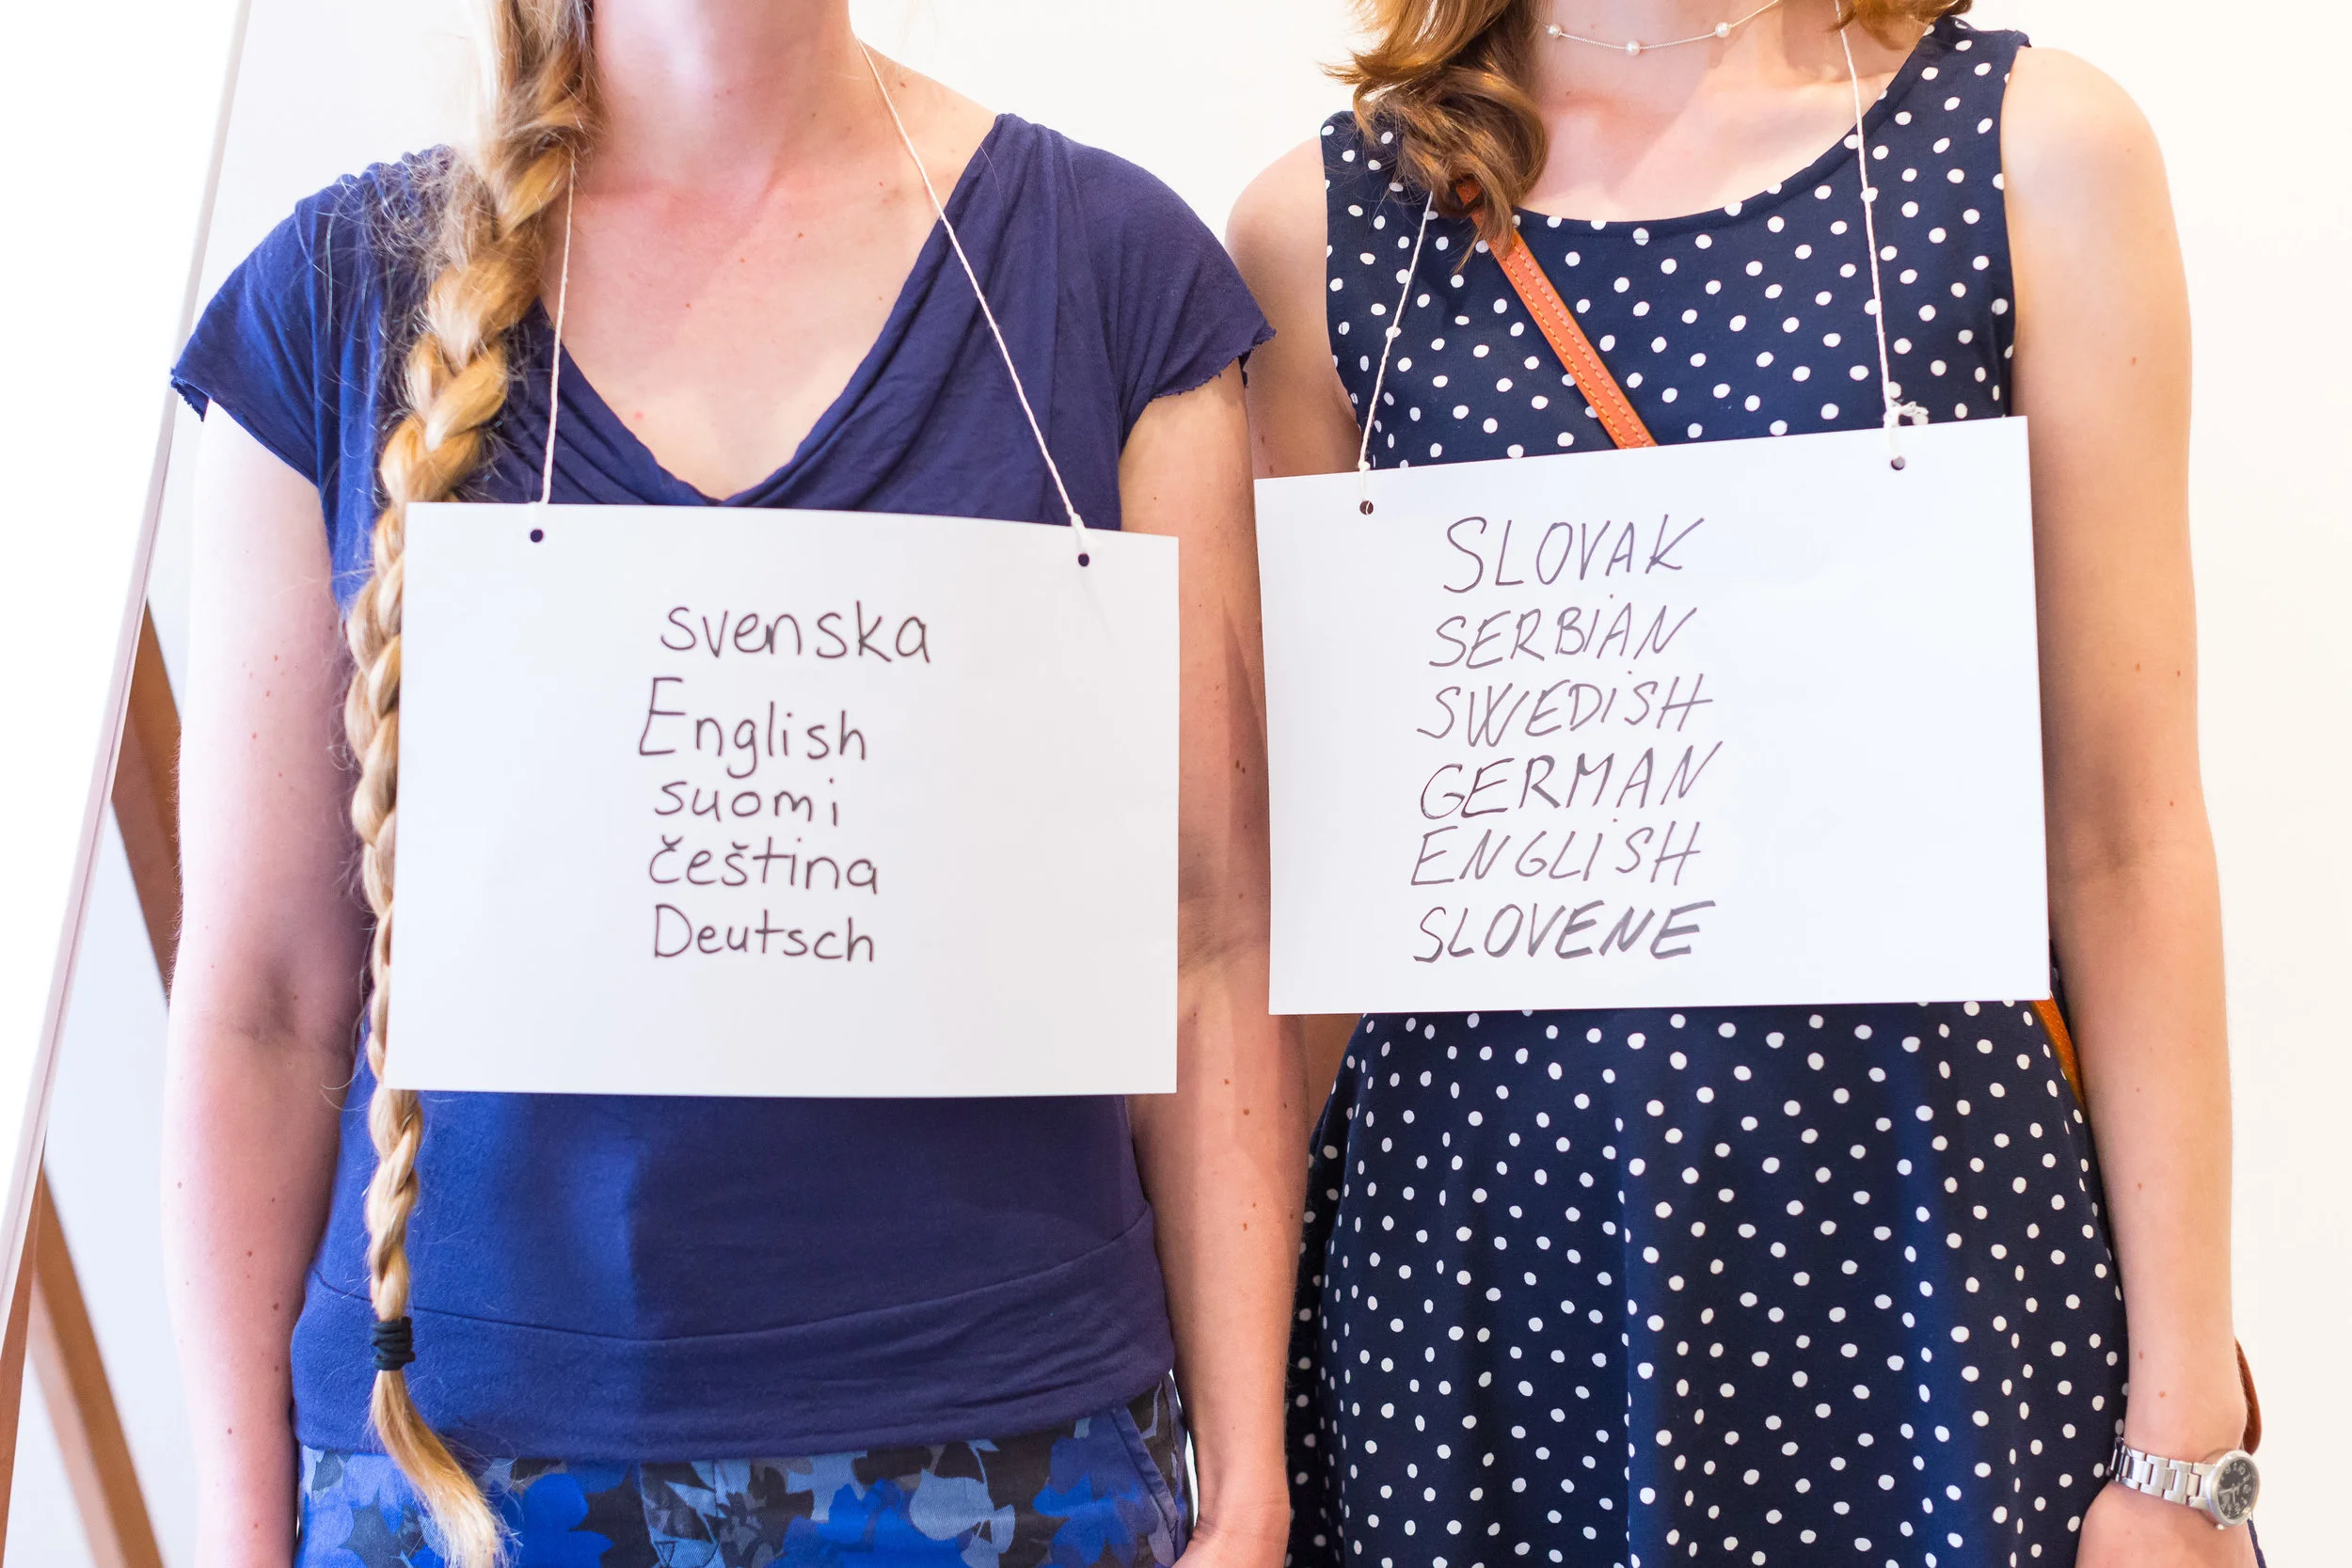 svenska
English
suomi
čeština
Deutsch
SLOVAK
SERBiAN
SWEDiSH
GERMAN
ENGLiSH
SLOVENE